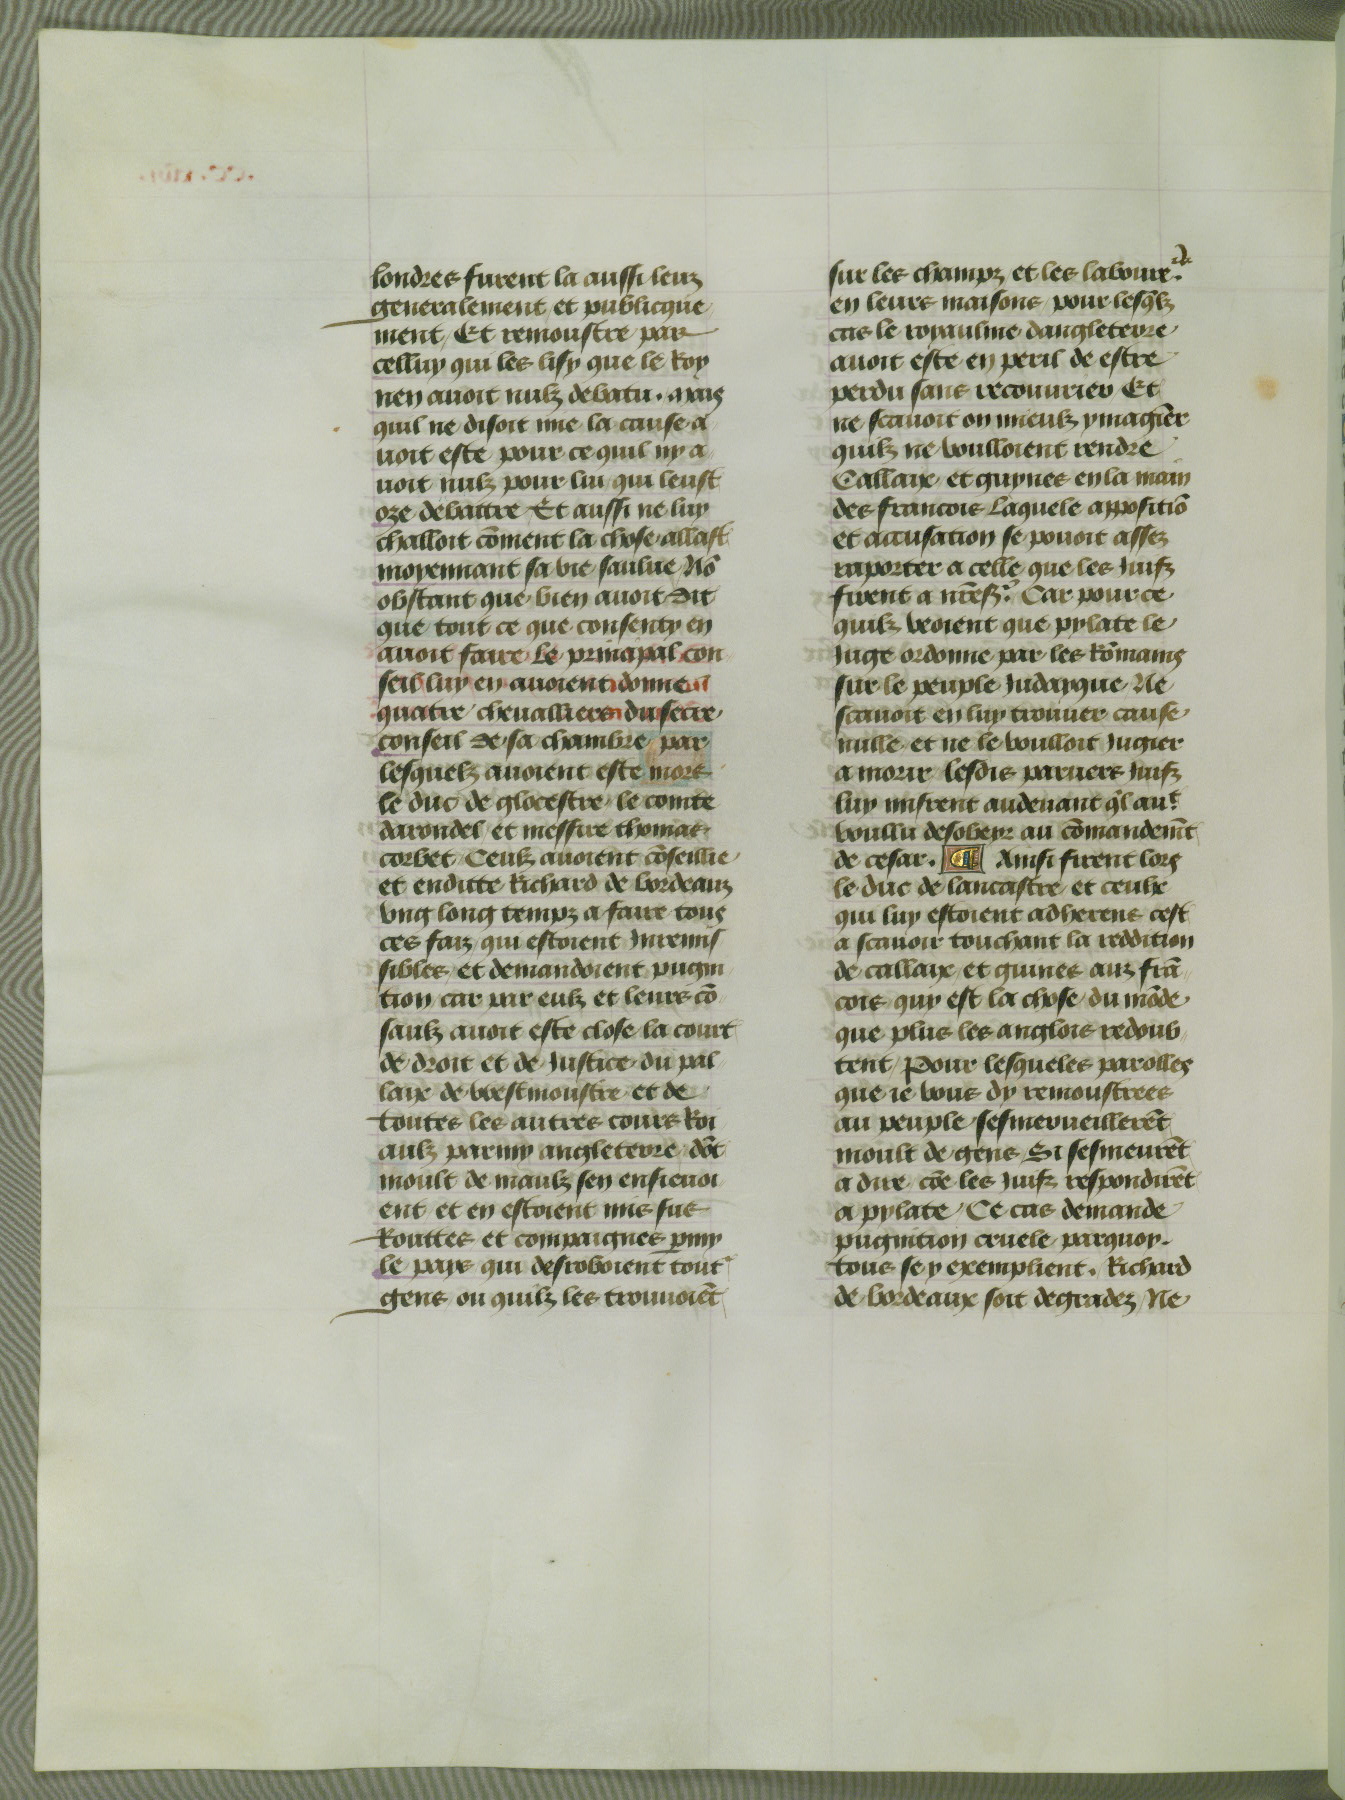 londres furent la aussi leuz
generalement et publicque
ment Et remoustre par
celluy qui les lisy que le Roy
nen auoit nulz debatu. Mais
quil ne disoit mie la cause a
uoit este pour ce quil ny a
uoit nulz pour lui qui leust
oze debattre Et aussi ne luy
challoit cōment la chose allast
moyennant sa vie saulue Nō
obstant que bien auoit dit
que tout ce que consenty en
auoit faire le principal con
seil luy en auoient donne
quatre cheualliers du secre
conseil de sa chambre par
lesquelz auoient este mors
le duc de glocestre le comte
darondel et messire thomas
corbet Ceulz auoient cōseillie
et enditte Richard de bordeaux
vng long tempz a faire tous
ces faiz qui estoient Inremis
sibles et demandoient pugni
tion car par eulz et leurs cō
saulz auoit este close la court
de droit et de Justice du pal
laix de westmoustre et de
toutes les autres cours Roi
aulz parmy angleterre dōt
moult de maulz sen ensieuoi
ent et en estoient mis sus
Routtes et compaignes ꝑmy
le pays qui desroboient tout
gens ou quilz les trouuoiēt
sur les champz et les labour.
en leurs maisons pour lesq̄lz
cas le royaulme dangleterre
auoit este en peril de estre
perdu sans recouurier Et
ne scauoit on mieulz ymagier
quilz ne voulloient rendre
Callaix et guynes en la main
des francois Laquele appositiō
et accusation se pouoit assez
raporter a celle que les Juifz
firent a nr̄e sr̄. Car pour ce
quilz veoient que pylate le
Juge ordonne par les Rōmains
sur le peuple Judayque Ne
scauoit en luy trouuer cause
nulle et ne le voulloit Jugier
a morir lesdis paruers Juifz
luy misrent audeuant q̄l aut
voullu desobeyr au cōmandemēt
de cesar. Ainsi firent lors
le duc de lancastre et ceulx
qui luy estoient adherens cest
a scauoir touchant la reddition
de callaix et guines aux frā
cois quy est la chose du mōde
que plus les anglois redoub
tent Pour lesqueles parolles
que ie vous dy remoustrees
au peuple sesmerueillerēt
moult de gens Si sesmeurēt
a dire cōe les Juifz respondirēt
a pylate Ce cas demande
pugnition cruele parquoy
tous se y exemplient. Richard
de bordeaux soit degradez Ne